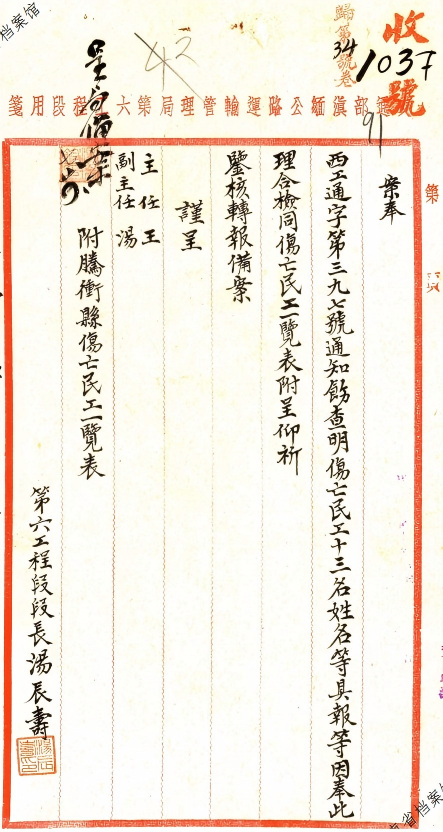 收號
1037
歸第34號卷
42
91
部滇緬公路運輸管理局第六工程段用箋
第 頁
案奉
西工通字第三九七號通知飭查明傷亡民工十三名姓名等具報等因奉此
理合檢同傷亡民工一覽表附呈仰祈
鑒核轉報備案
謹呈
主任王
副主任湯
附騰衝縣傷亡民工一覽表
第六工程段段長湯辰壽
档案馆
省档案馆